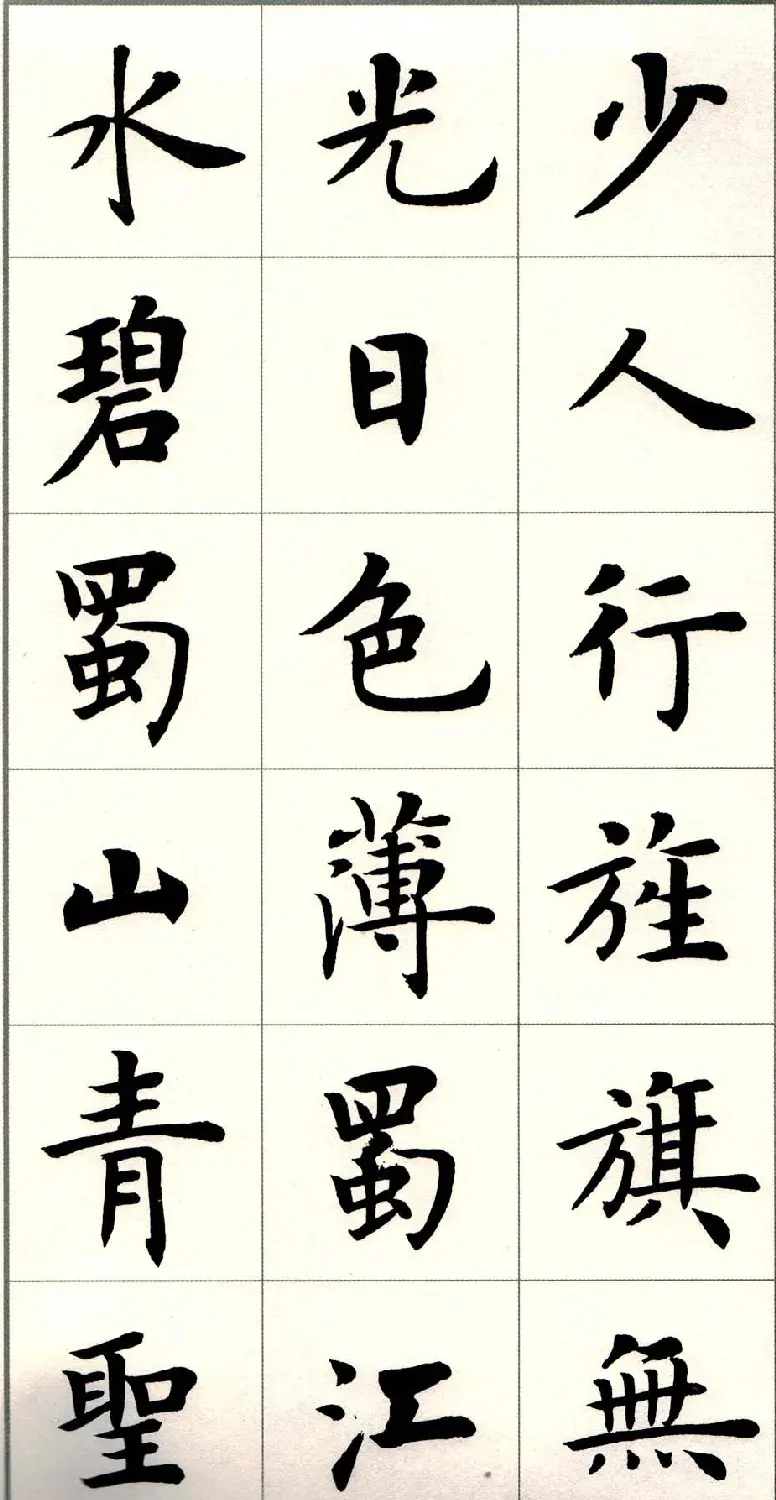 少人行旌旗無
光日色薄蜀江
水碧蜀山青聖